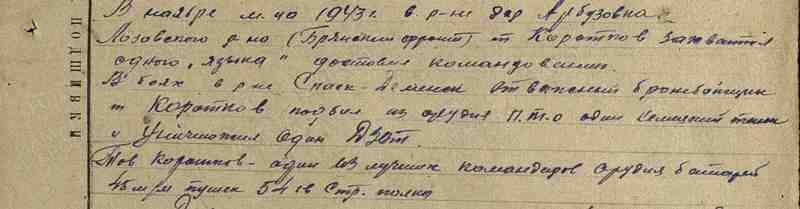 В ноябре м-це 1943 г. в р-не дер Арбузовка
Лозовского р-на (Брянский фронт) т Коротков захватил
одного "языка" доставил командованию.
В боях в р-не Спаск-Деменск отважный бронебойщик
т Коротков подбил из орудия П.Т.О один немецкий танк
и уничтожил один ДЗОТ.
Тов Коротков - один из лучших командиров орудия батареи
45 м/м пушек 54 гв Стр. полка